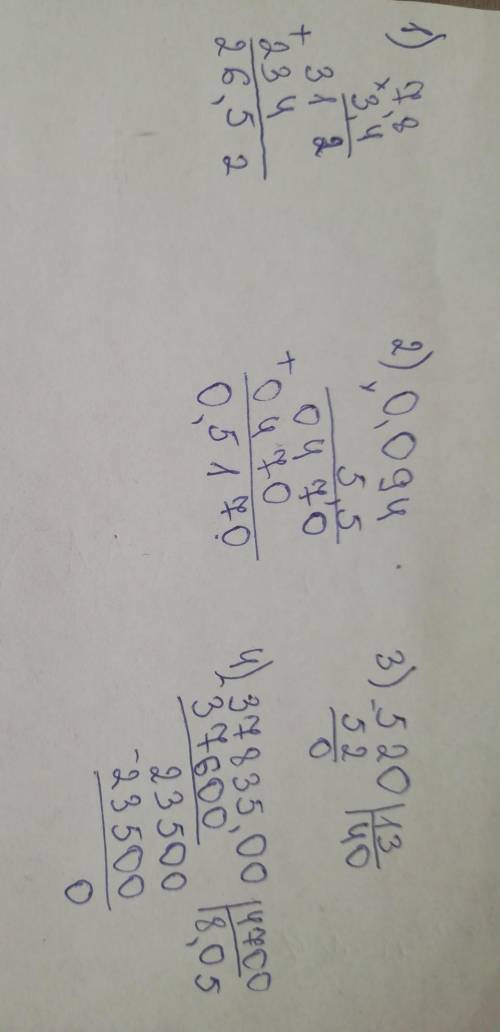 1) 7,8
×3,4
3 1 2
+
2 3 4
2 6, 5 2
2) 0,094
× 5,5
0 4 7 0
+
0 4 7 0
0, 5 1 7 0
3) -520 |13
52 40
0
4) -37835,00 |4700
37600 8,05
23500
-23500
0